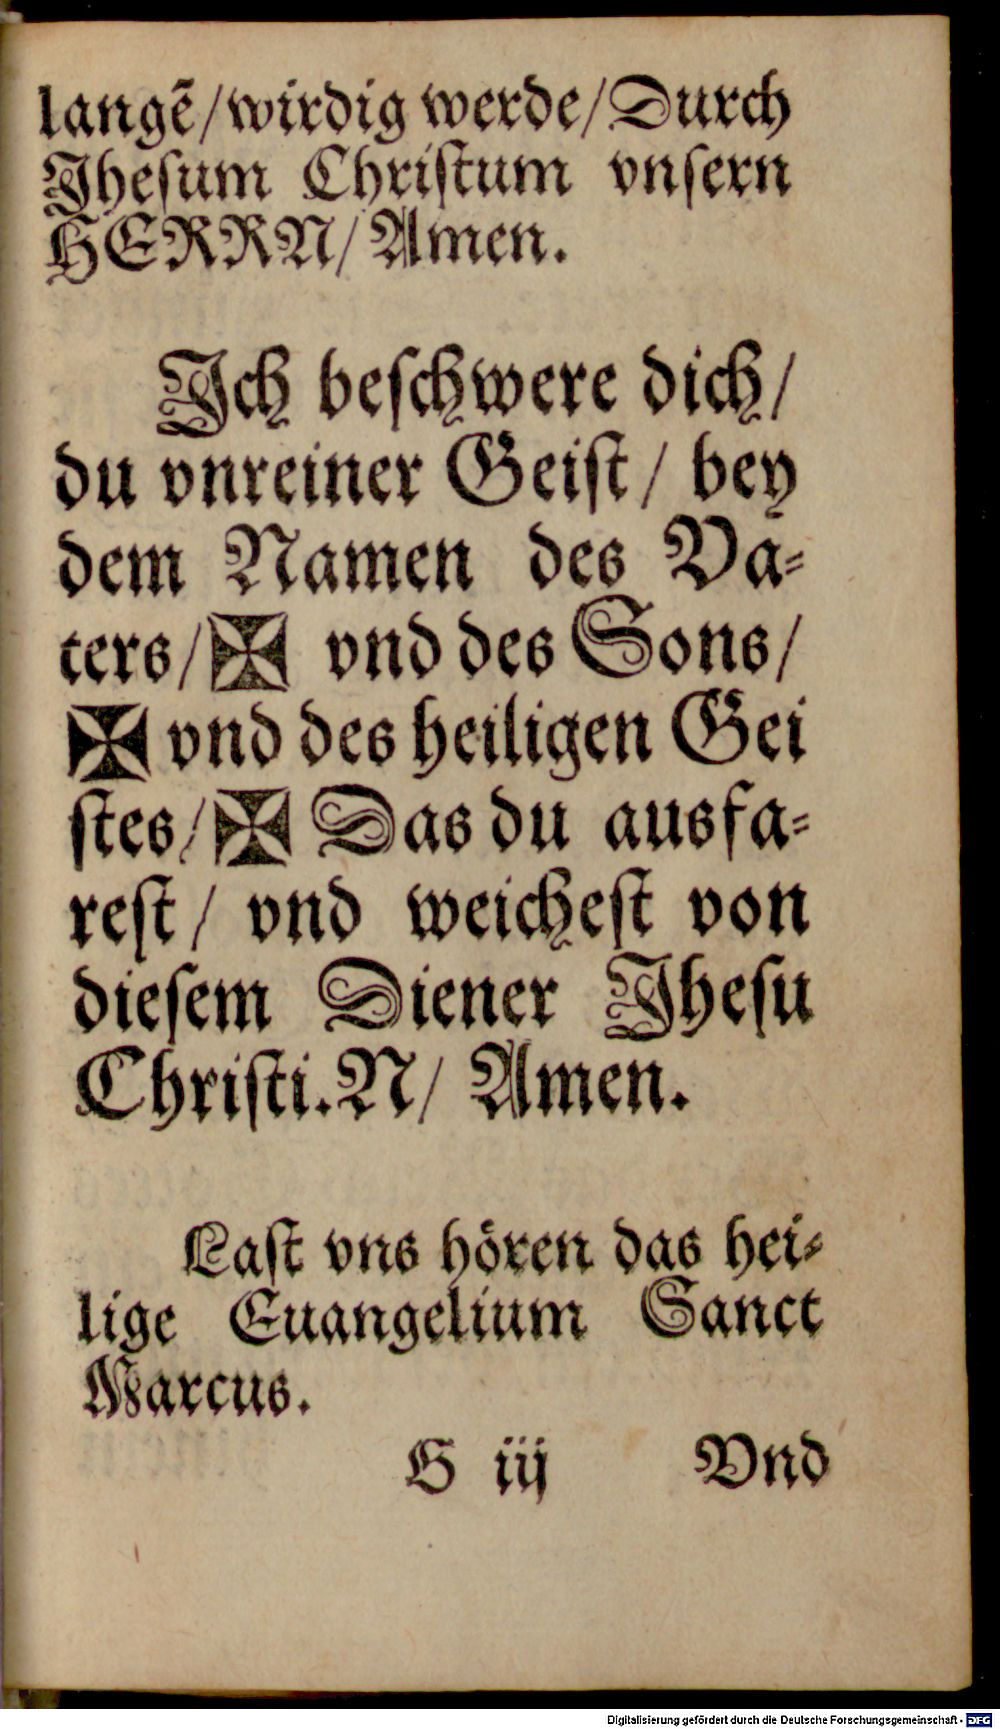 langẽ/wirdig werde/Durch
Jheſum Chriſtum vnſern
HERRN/ Amen.
Jch beſchwere dich/
du vnreiner Geiſt/ bey
dem Namen des Va⸗
ters/✠ vnd des Sons/
✠ vnd des heiligen Gei
ſtes/✠ Das du ausfa⸗
reſt/ vnd weicheſt von
dieſem Diener Jheſu
Chriſti.N/ Amen.
Laſt vns hören das hei⸗
lige Euangelium Sanct
Marcus.
G iij Vnd
Digitalisierung gefördert durch die Deutsche Forschungsgemeinschaft - DFG